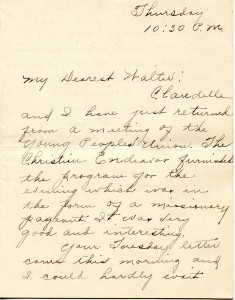 Thursday
10:30 P.M.
My Dearest Walter:
Claudelle
and I have just returned
from a meeting of the
Young People's Union. The
Christian Endeavor furnished
the program for the
evening which was in
the form of a missionary
pageant. It was very
good and interesting.
Your Tuesday letter
came this morning and
I could hardly wait